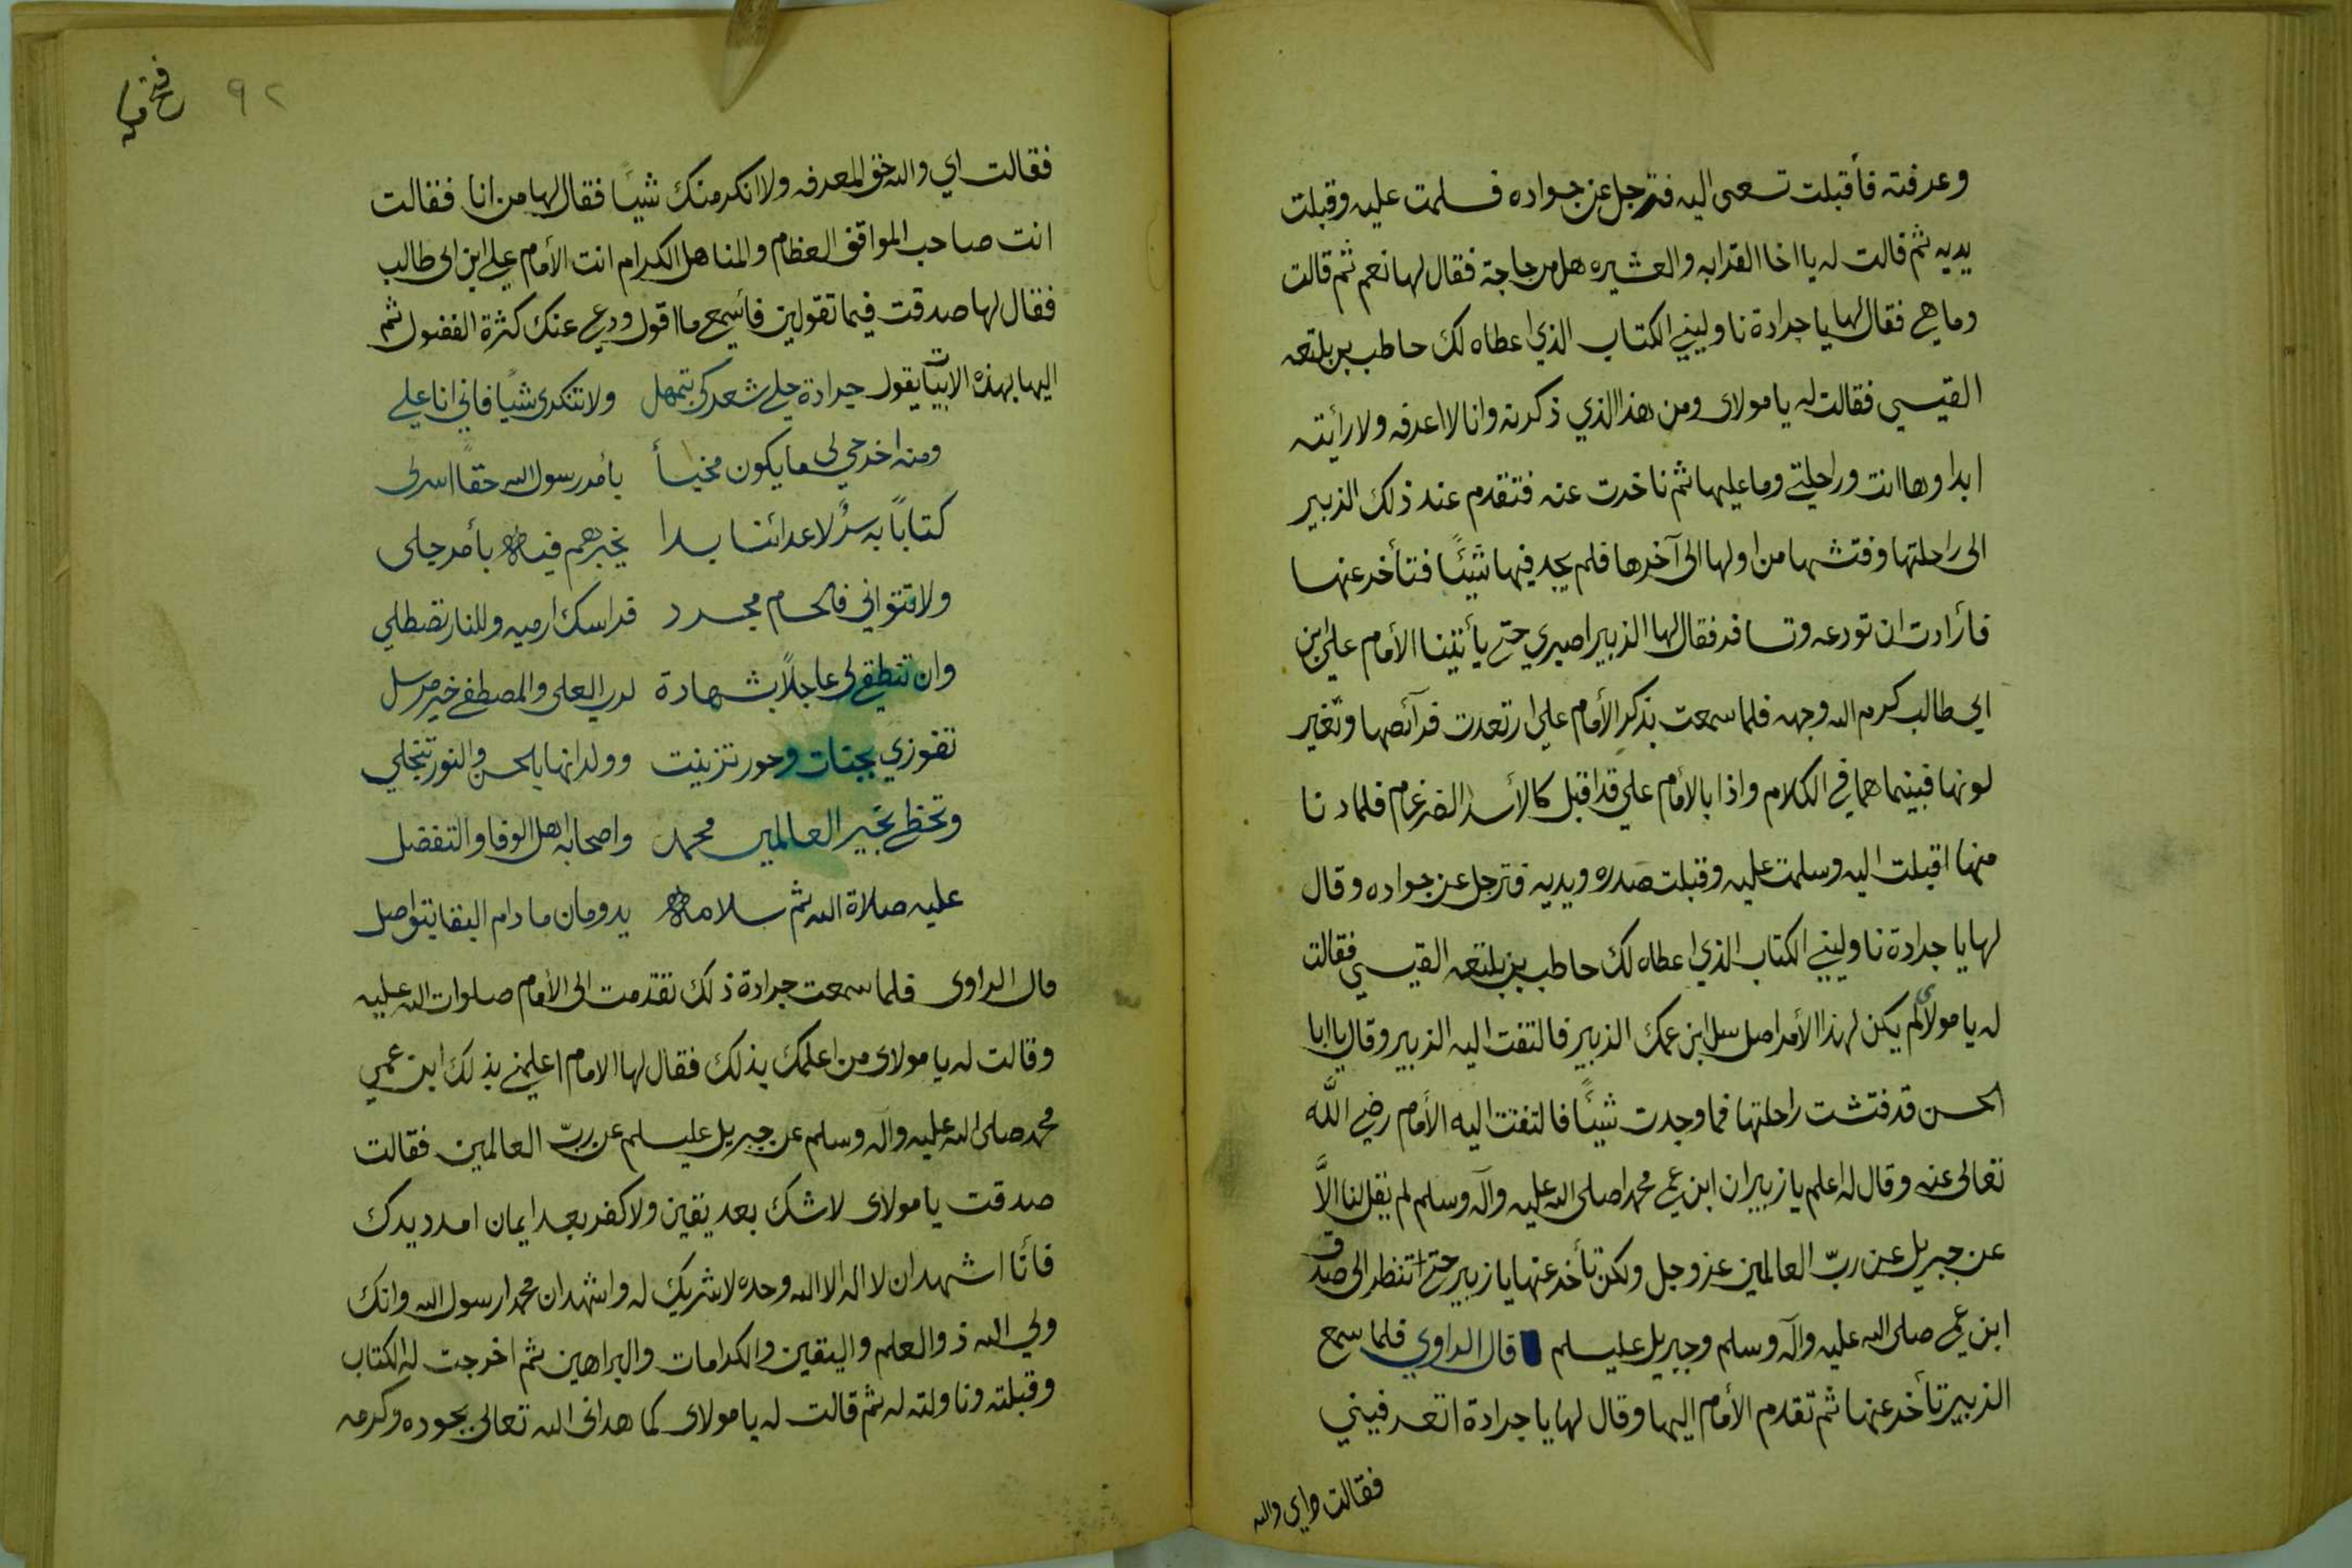 وعرفته فأقبلت تسعى اليه فترجل عن جواده فسلمت عليه وقبلت
يديه ثم قالت له يا اخا القرابه والعشيره هل من حاجة فقال لها نعم ثم قالت
وما هي فقال لها يا جرادة ناوليني الكتاب الذي اعطاه لك حاطب بن بلتعه
القيسي فقالت له يا مولاى ومن هذا الذي ذكرته وانا لا اعرفه ولا رأيته
ابدا وها انت وراحلتي وما عليها ثم تأخرت عنه فتقدم عند ذلك الزبير
الى راحلتها وفتشها من اولها الى آخرها فلم يجد فيها شيئًا فتأخر عنها
فأرادت ان تودعه وتسافر فقال لها الزبير اصبري حتى يأتينا الأمام علي ابن
ابي طالب كرم الله وجهه فلما سمعت بذكر الأمام علي ارتعدت فرآئصها وتغير
لونها فبينما هما في الكلام واذا بالأمام علي قد اقبل كالأسد الضرغام فلما دنا
منها اقبلت اليه وسلمت عليه وقبلت صدره ويديه فترجل عن جواده وقال
لها يا جرادة ناوليني الكتاب الذي اعطاه لك حاطب بن بلتعه القيسي فقالت
له يا مولاي لم يكن لهذا الأمر اصل سل ابن عمك الزبير فالتفت اليه الزبير وقال يا ابا
الحسن قد فتشت راحلتها فما وجدت شيئًا فالتفت اليه الأمام رضي اللّه
تعالى عنه وقال له اعلم يا زبير ان ابن عمي محمدا صلى الله عليه وآله وسلم لم يقل لنا الاَّ
عن جبريل عن ربّ العالمين عز وجل ولكن تأخر عنها يا زبير حتى تنظر الى صدق
ابن عمي صلى الله عليه وآله وسلم وجبريل عليسلم قال الراوي فلما سمع
الزبير تأخر عنها ثم تقدم الأمام اليها وقال لها يا جرادة اتعرفيني
فقالت اي والله
٩٢
فقالت اي والله حق المعرفه ولا انكر منك شيئًا فقال لها من انا فقالت
انت صاحب المواقف العظام والمناهل الكرام انت الأمام علي ابن ابى طالب
فقال لها صدقت فيما تقولين فأسمعي ما اقول ودعي عنك كثرة الفضول ثم
اليها بهذه الابيات يقول جرادة حلي شعركى بتمهل ولا تنكرى شيًا فاني انا علي
ومنه اخرجي لى ما يكون مخبأ بأمر رسول الله حقاً اسرلى
كتاباً به سرٌ لاعدائنا بدا يخبرهم فيه بأمر جلى
ولا تتواني فالحسام مجرد فراسك ارميه وللنار تصطلي
وان تنطقي لى عاجلاً بشهادة لرب العلى والمصطفى خير مرسل
تفوزي بجنات وحور تزينت وولدانها بالحسن والنور تنجلي
وتحظي بخير العالمين محمد واصحابه اهل الوفا والتفضل
عليه صلاة الله ثم سلامه يدومان ما دام البقا يتواصل
قال الراوى فلما سمعت جرادة ذلك تقدمت الى الأمام صلوات الله عليه
وقالت له يا مولاى من اعلمك بذلك فقال لها الامام اعلمني بذلك ابن عمي
محمد صلى الله عليه وآله وسلم عن جبريل عليسلم عن ربّ العالمين فقالت
صدقت يا مولاى لا شك بعد يقين ولا كفر بعد ايمان امدد يدك
فأنا اشهد ان لا اله الا الله وحده لا شريك له واشهد ان محمدا رسول الله وانك
ولي الله ذو العلم واليقين والكرامات والبراهين ثم اخرجت له الكتاب
وقبلته وناولته له ثم قالت له يا مولاى كما هدانى الله تعالى بجوده وكرمه